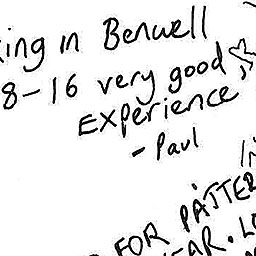 king in Benwell
8-16 very good
Experience
- Paul
FOR PATTER
EAR. L